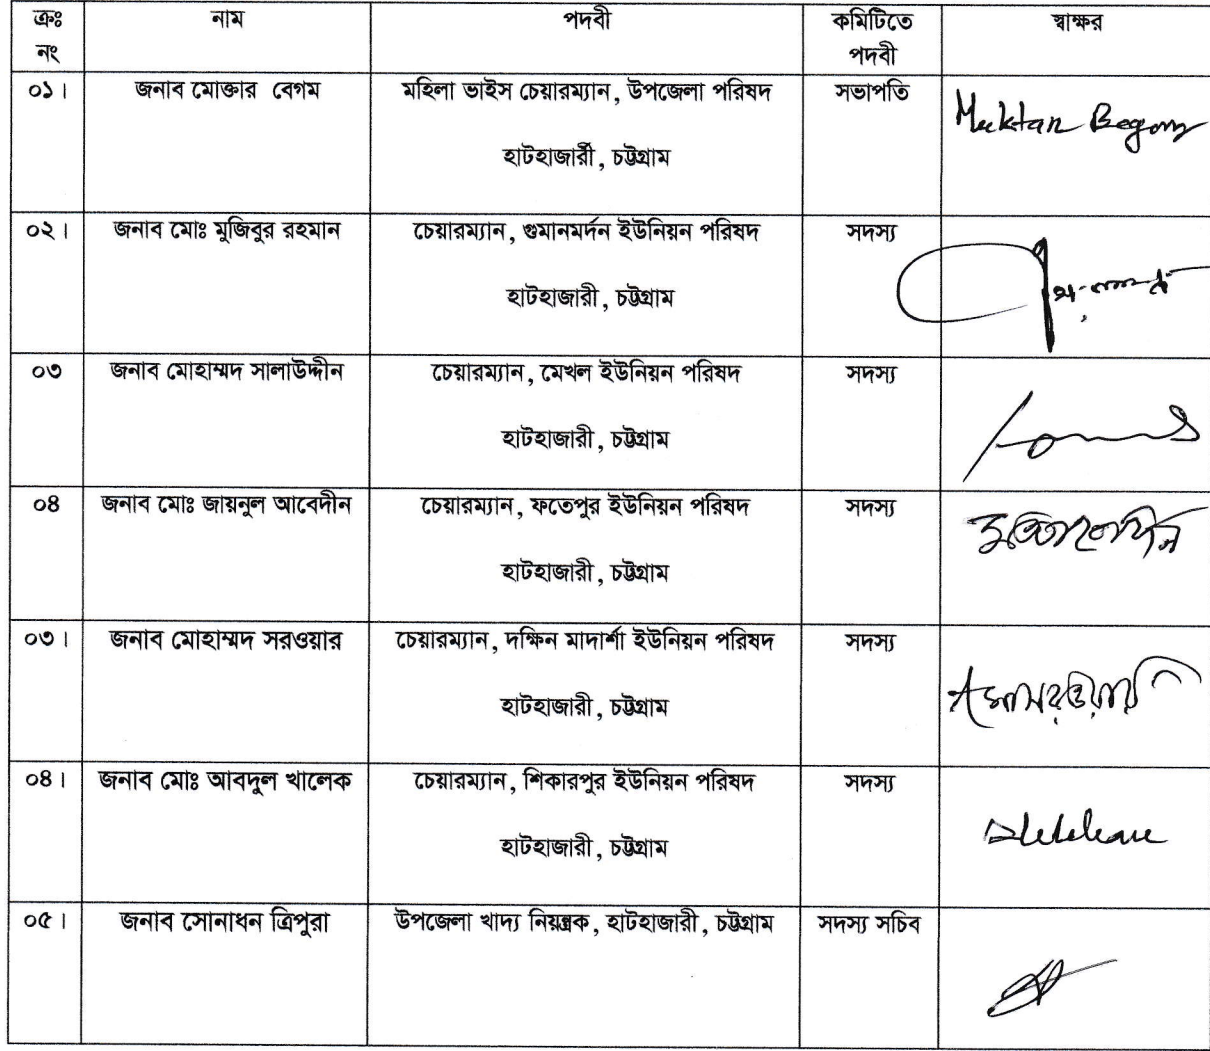 ক্রঃ নং নাম পদবী কমিটিতে পদবী স্বাক্ষর
০১। জনাব মোক্তার বেগম মহিলা ভাইস চেয়ারম্যান, উপজেলা পরিষদ সভাপতি Muktar Begom
হাটহাজারী, চট্টগ্রাম
০২। জনাব মোঃ মুজিবুর রহমান চেয়ারম্যান, গুমানমর্দন ইউনিয়ন পরিষদ সদস্য
হাটহাজারী, চট্টগ্রাম
০৩ জনাব মোহাম্মদ সালাউদ্দীন চেয়ারম্যান, মেখল ইউনিয়ন পরিষদ সদস্য
হাটহাজারী, চট্টগ্রাম
০৪ জনাব মোঃ জায়নুল আবেদীন চেয়ারম্যান, ফতেপুর ইউনিয়ন পরিষদ সদস্য
হাটহাজারী, চট্টগ্রাম
০৩। জনাব মোহাম্মদ সরওয়ার চেয়ারম্যান, দক্ষিন মাদার্শা ইউনিয়ন পরিষদ সদস্য
হাটহাজারী, চট্টগ্রাম
০৪। জনাব মোঃ আবদুল খালেক চেয়ারম্যান, শিকারপুর ইউনিয়ন পরিষদ সদস্য
হাটহাজারী, চট্টগ্রাম
০৫। জনাব সোনাধন ত্রিপুরা উপজেলা খাদ্য নিয়ন্ত্রক, হাটহাজারী, চট্টগ্রাম সদস্য সচিব